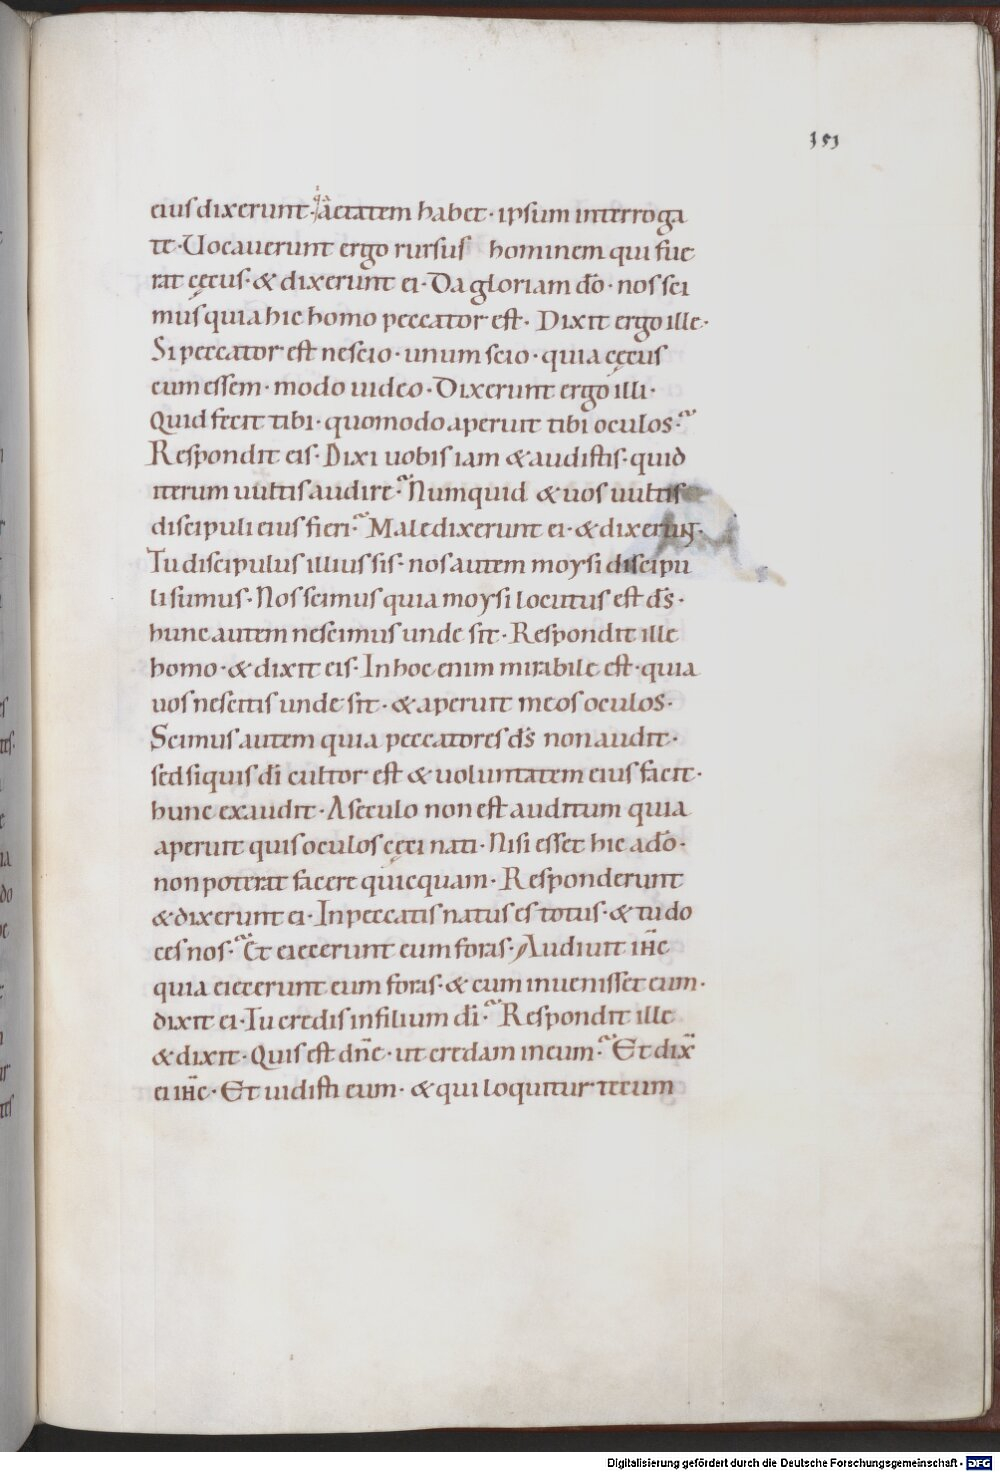 151
eius dixerunt· q̇a ętatem habet· ipsum interroga
te· Uocauerunt ergo rursus hominem qui fue
rat cęcus· & dixerunt ei· Da gloriam dō· nos sci
mus quia hic homo peccator est· Dixit ergo ille·
Si peccator est nescio· unum scio· quia cęcus
cum essem· modo uideo· Dixerunt ergo illi·
Quid fecit tibi· quomodo aperuit tibi oculos·
Respondit eis· Dixi uobis iam & audistis· quid
iterum uultis audire· Numquid & uos uultis
discipuli eius fieri· Maledixerunt ei· & dixerunt·
Tu discipulus illius sis· nos autem moysi discipu
li sumus· Nos scimus quia moysi locutus est ds̄·
hunc autem nescimus unde sit· Respondit ille
homo· & dixit eis· In hoc enim mirabile est· quia
uos nescitis unde sit· & aperuit meos oculos·
Scimus autem quia peccatores ds̄ non audit·
sed si quis dī cultor est & uoluntatem eius facit·
hunc exaudit· A seculo non est auditum quia
aperuit quis oculos cęci nati· Nisi esset hic a dō·
non poterat facere quicquam· Responderunt
& dixerunt ei· In peccatis natus es totus· & tu do
ces nos· Et eiecerunt eum foras· Audiuit ihc̄
quia eiecerunt eum foras· & cum inuenisset eum·
dixit ei· Tu credis in filium dī· Respondit ille
& dixit· Quis est dn̄e· ut credam in eum· Et dix̄
ei ihc̄· Et uidisti eum· & qui loquitur tecum
Digitalisierung gefördert durch die Deutsche Forschungsgemeinschaft - DFG